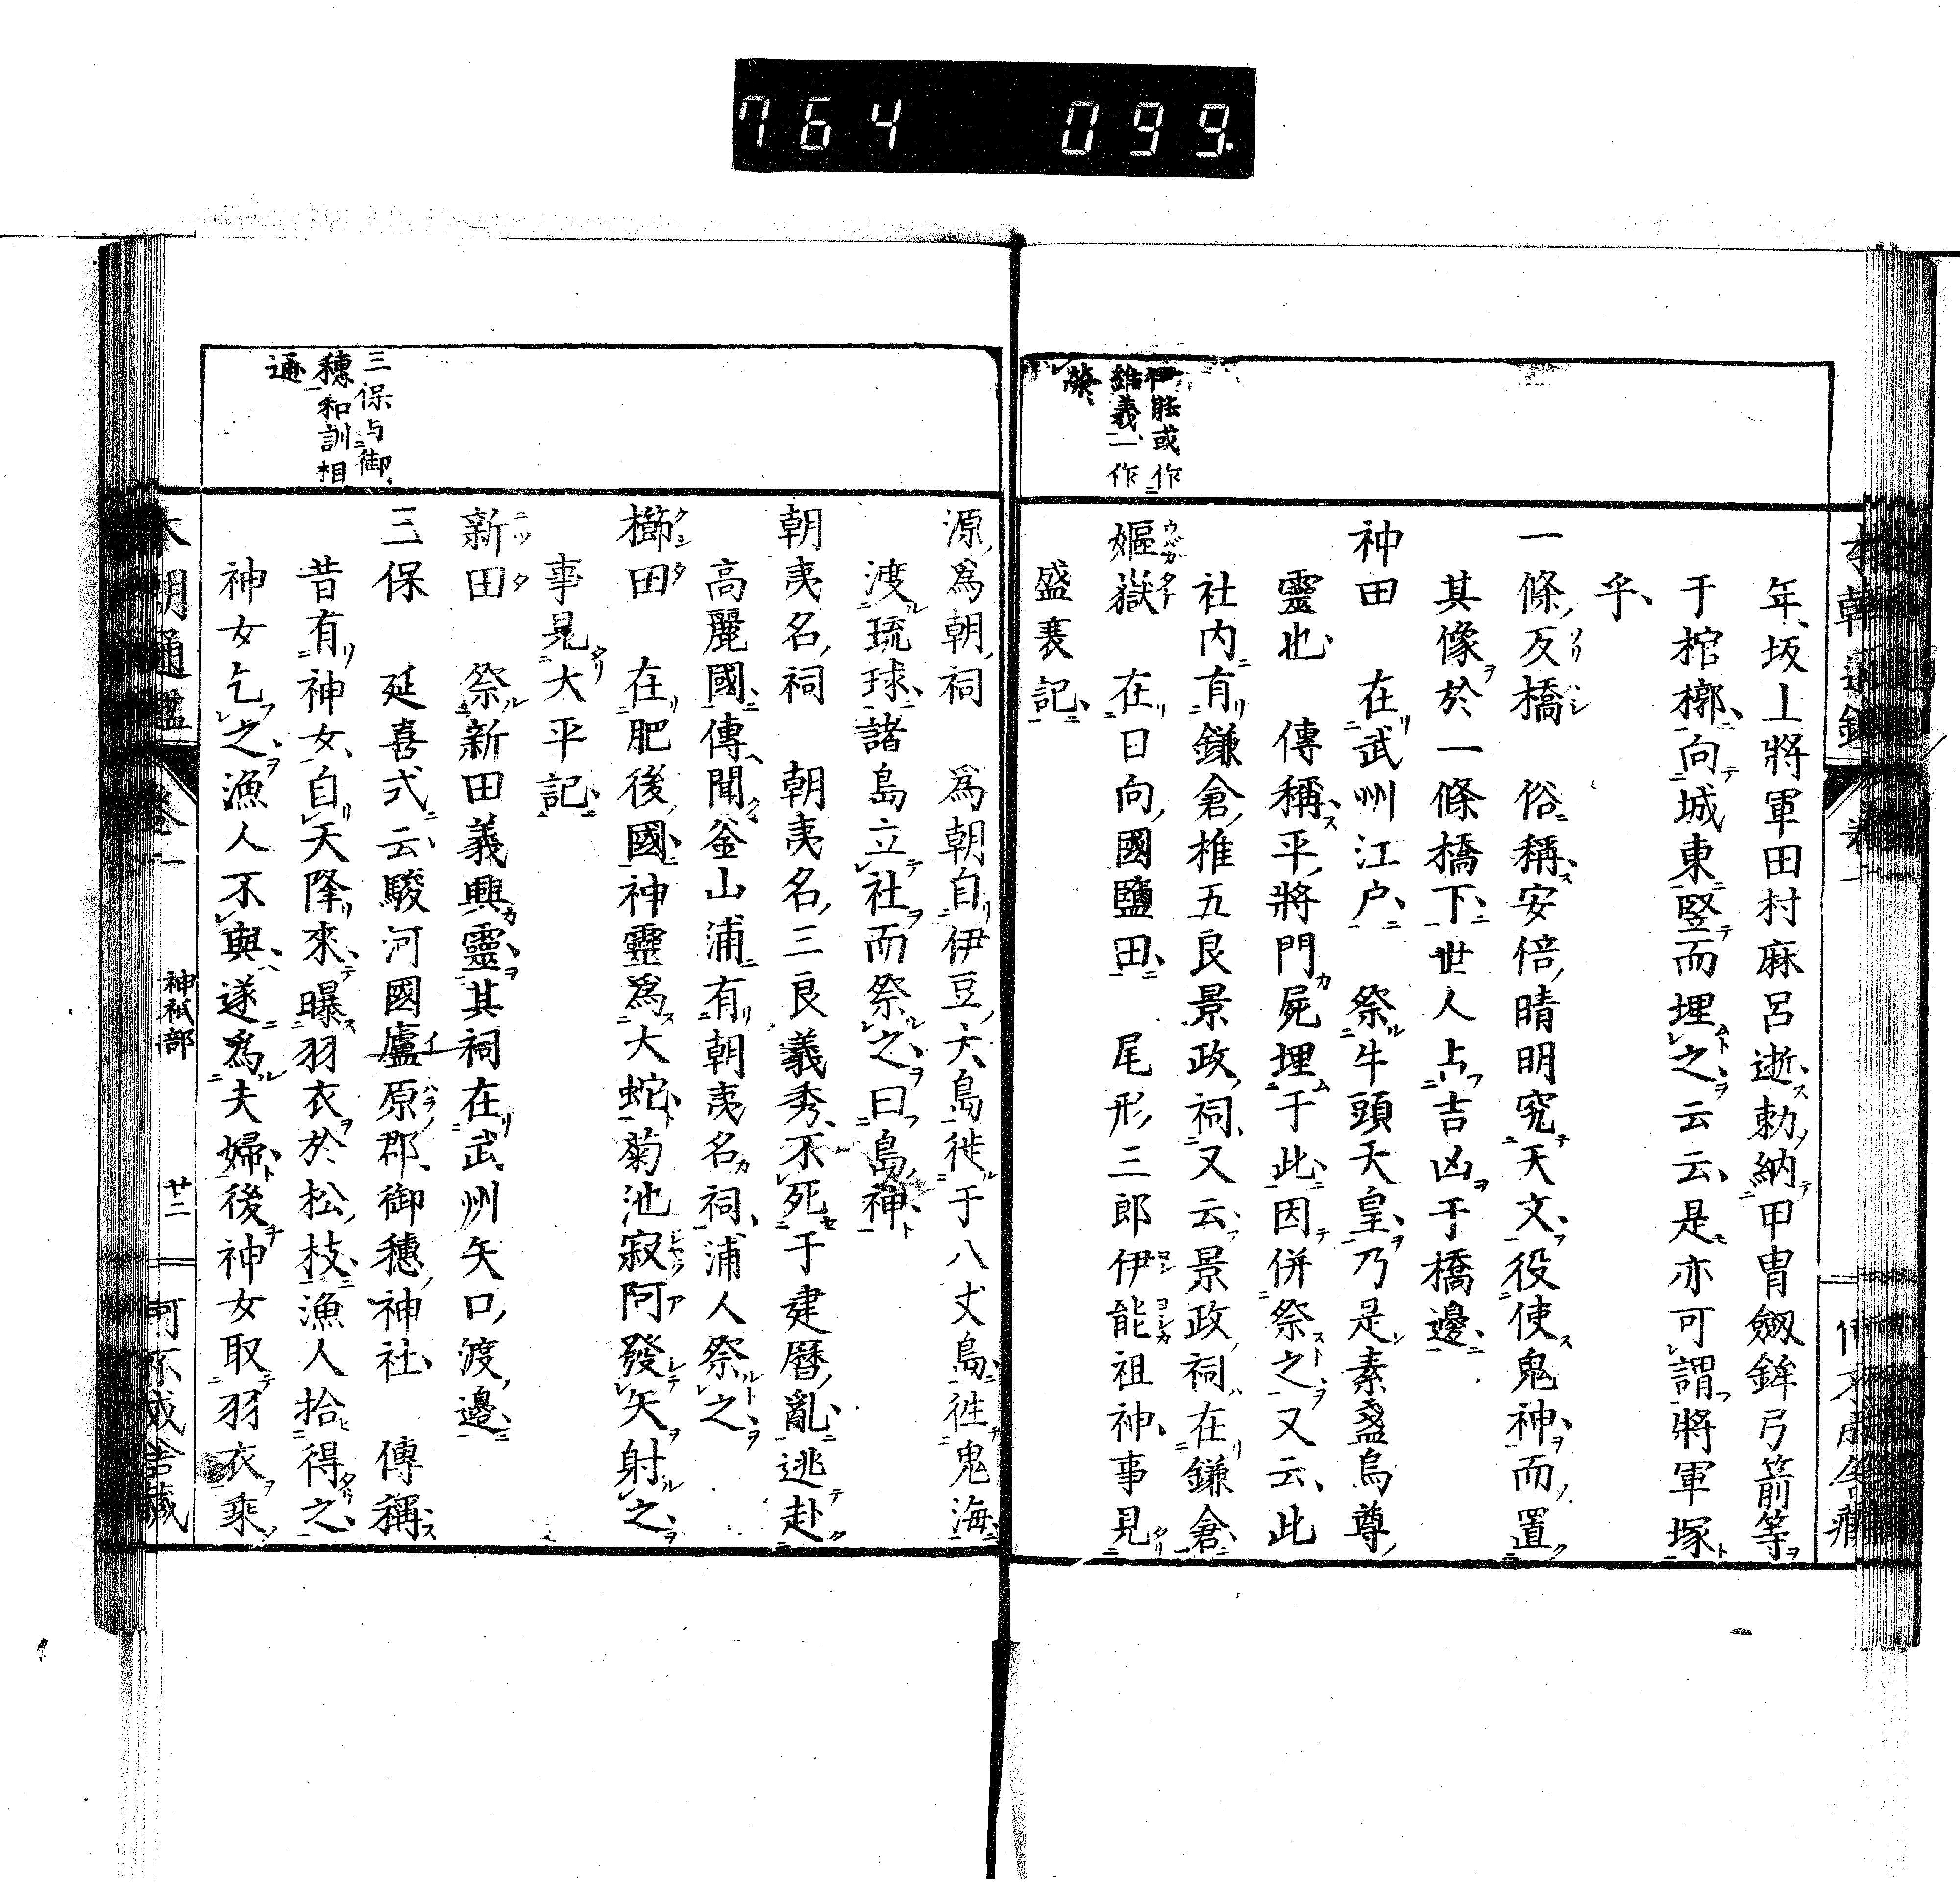 764 099
伊能或作
維義一作
榮
年坂上將軍田村麻呂逝勅納甲冑劔鉾弓箭等
于棺槨向城東竪而埋之云云是亦可謂將軍塚
乎
一條反橋 俗稱安倍晴明究天文役使鬼神而置
其像於一條橋下世人占吉凶于橋邊
神田 在武州江戸 祭牛頭天皇乃是素盞烏尊
靈也 傳稱平將門屍埋于此因併祭之又云此
社内有鎌倉椎五良景政祠又云景政祠在鎌倉
嫗嶽 在日向國鹽田 尾形三郎伊能祖神事見
盛衰記
三保与御
穗和訓相
通
源爲朝祠 爲朝自伊豆大島徙于八丈島徃鬼海
渡琉球諸島立社而祭之曰島神
朝夷名祠 朝夷名三良義秀不死于建曆亂逃赴
高麗國傳聞釜山浦有朝夷名祠浦人祭之
櫛田 在肥後國神靈爲大蛇菊池寂阿發矢射之
事見大平記
新田 祭新田義興靈其祠在武州矢口渡邊
三保 延喜式云駿河國廬原郡御穗神社 傳稱
昔有神女自天降來曝羽衣於松枝漁人拾得之
神女乞之漁人不與遂爲夫婦後神女取羽衣乘
本朝通鑑 卷一 神祇部 廿二